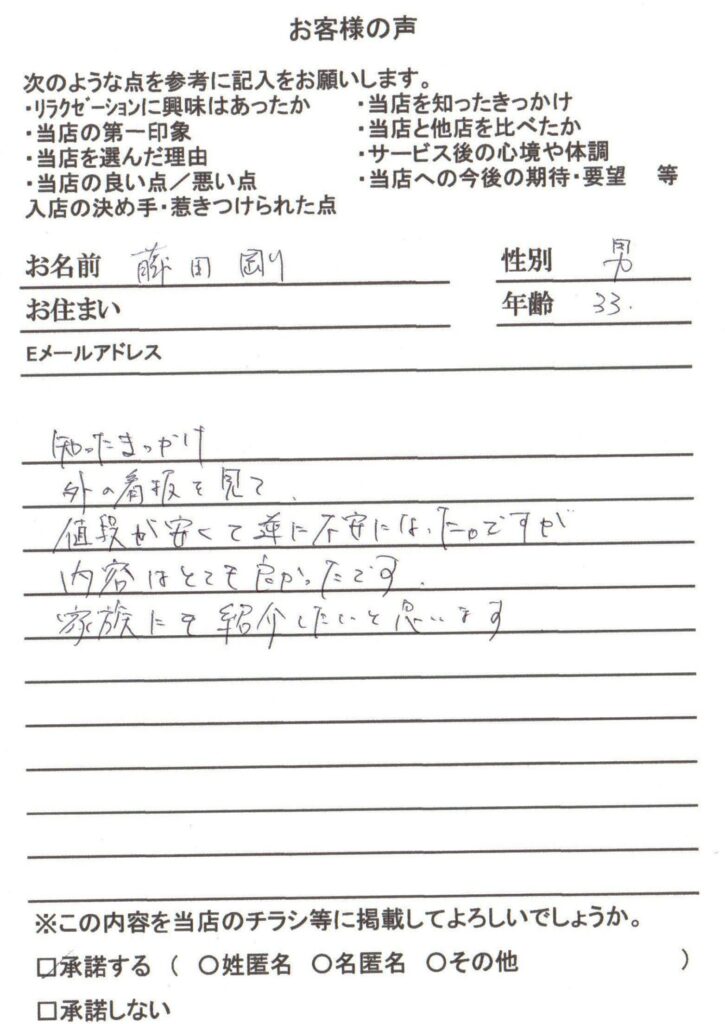 お客様の声
次のような点を参考に記入をお願いします。
・ﾘﾗｸｾﾞｰｼｮﾝに興味はあったか ・当店を知ったきっかけ
・当店の第一印象 ・当店と他店を比べたか
・当店を選んだ理由 ・サービス後の心境や体調
・当店の良い点／悪い点 ・当店への今後の期待・要望 等
入店の決め手・惹きつけられた点
お名前 藤田 剛 性別 男
お住まい 年齢 33.
Eメールアドレス
知ったきっかけ
外の看板を見て、
値段が安くて逆に不安になったのですが
内容はとても良かったです.
家族にも紹介したいと思います
※この内容を当店のチラシ等に掲載してよろしいでしょうか。
☑承諾する ( ○姓匿名 ○名匿名 ○その他 )
□承諾しない